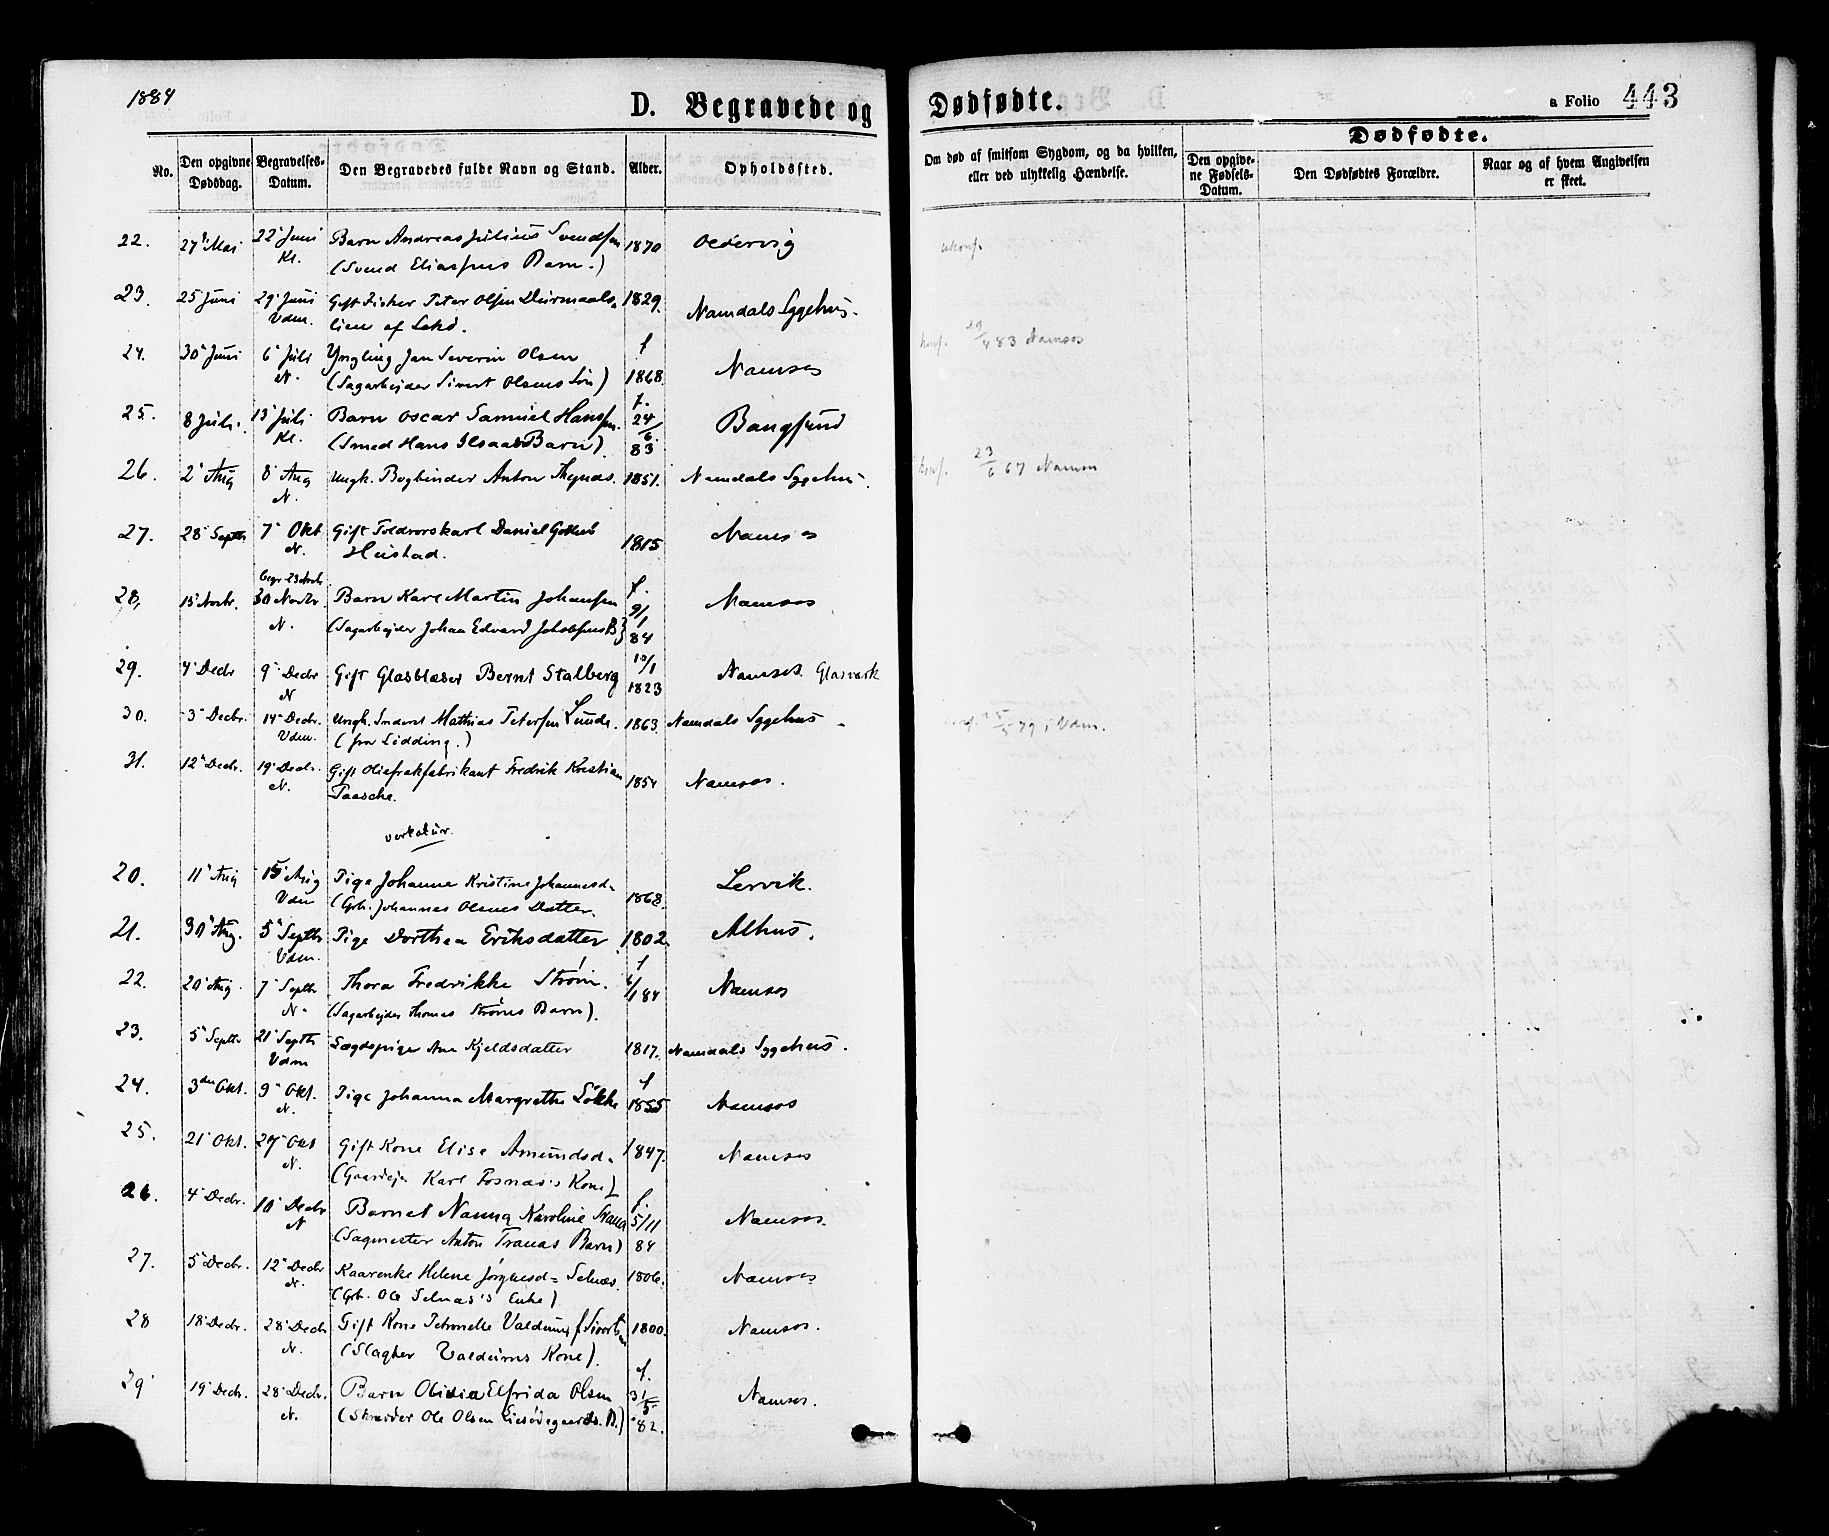 1884
D. Begravede og Dødfødte.
a Folio 443
No.
Den opgivne Dødsdag.
Begravelses-Datum.
Den Begravedes fulde Navn og Stand.
Alder.
Opholdssted.
Om død af smitsom Sygdom, og da hvilken,
eller ved ulykkelig Hændelse.
Dødfødte.
Den opgivene Fødsels-Datum.
Den Dødfødtes Forældre.
Naar og af hvem Angivelsen er skeet.
22. 27' Mai 22' Juni Barn Andreas Julius Svendsen 1870
Kl. (Svend Eliassens Barn.)
ukonf.
23. 25' Juni 29' Juni Gift Fisker Peter Olsen 1829. Namdals Sygehus.
Vdm. lien af Lekø.
24. 30' Juni 6' Juli Yngling Jan Severin Olsen f 1868. Namsos
N. (Sagarbejder Sivert Olsens Søn)
konf. 29/4 83 Namsos
25. 8 Juli. 13' Juli Barn Oscar Samuel Hanssen. f. 24/6. 83 Bangsund
Kl. (Smed Hans Barn)
26. 2' Aug 8' Aug Ungk. Bogbinder Anton 1851. Namdals Sygehus.
N.
konf. 23/6 67 Namsos
27. 28' Septbr 7' Okt Gift Toldrorskarl Daniel 1815. Namsos
N. Heistad.
28. 15' Novbr. Begr 23 Novbr 30 Novbr. Barn Karl Martin Johansen f. 9/1 84 Namsos
N. (Sagarbejder Johan Edvard B)
29. 4' Decbr 9' Decbr Gift Glasblæser Bernt Stalberg 10/1 1823 Namsos Glasværk
N
30. 3' Decbr. 14' Decbr. Ungk. Mathias Petersen Lunde. 1863. Namdals Sygehus
Vdm. (fra Lødding.)
konf. 79 i Vdm.
31. 12' Decbr. 19' Decbr. Gift Fredrik Kristian 1854 Namsos.
N. Paasche.
20. 11' Aug 15' Aug Pige Johanna Kristine Johannesd. 1868. Lervik.
Vdm (Gbr. Johannes Olsens Datter.
21. 30' Aug. 5' Septbr Pige Dorthea Eriksdatter 1802. Alhus.
Vdm.
22. 20' Aug. 7' Septbr Thora Fredrikke Strøm. f 84 Namsos
N. (Sagarbejder Thomas Strøms Barn).
23. 5' Septbr 21' Septbr Lægdspige Ane Kjeldsdatter 1817. Namdals Sygehus.
Vdm
24. 3die Okt. 9' Okt. Pige Johanna Margrethe Løkke f 1855 Namsos
N.
25. 21' Okt. 27' Okt Gift Kone Elise Amundsd. 1847. Namsos
N. (Gaardejer Karl Fosnæs's Kone)
26. 4' Decbr. 10' Decbr Barnet Nanna Karoline Trana f. 5/11 84 Namsos.
N (Sagmester Anton Tranas Barn)
27. 5' Decbr. 12' Decbr Kaarenke Helene Selnæs. 1806. Namsos
N. (Gbr. Ole Selnæs's Enke)
28 18' Decbr. 28' Decbr Gift Kone Petronelle Valdrum f. 1800. Namsos.
N. (Slagter Valdrums Kone).
29 19' Decbr. 28' Decbr. Barn Elfrida Olsen f. 31/5 82. Namsos.
N. (Skræder Ole Olsen B.)